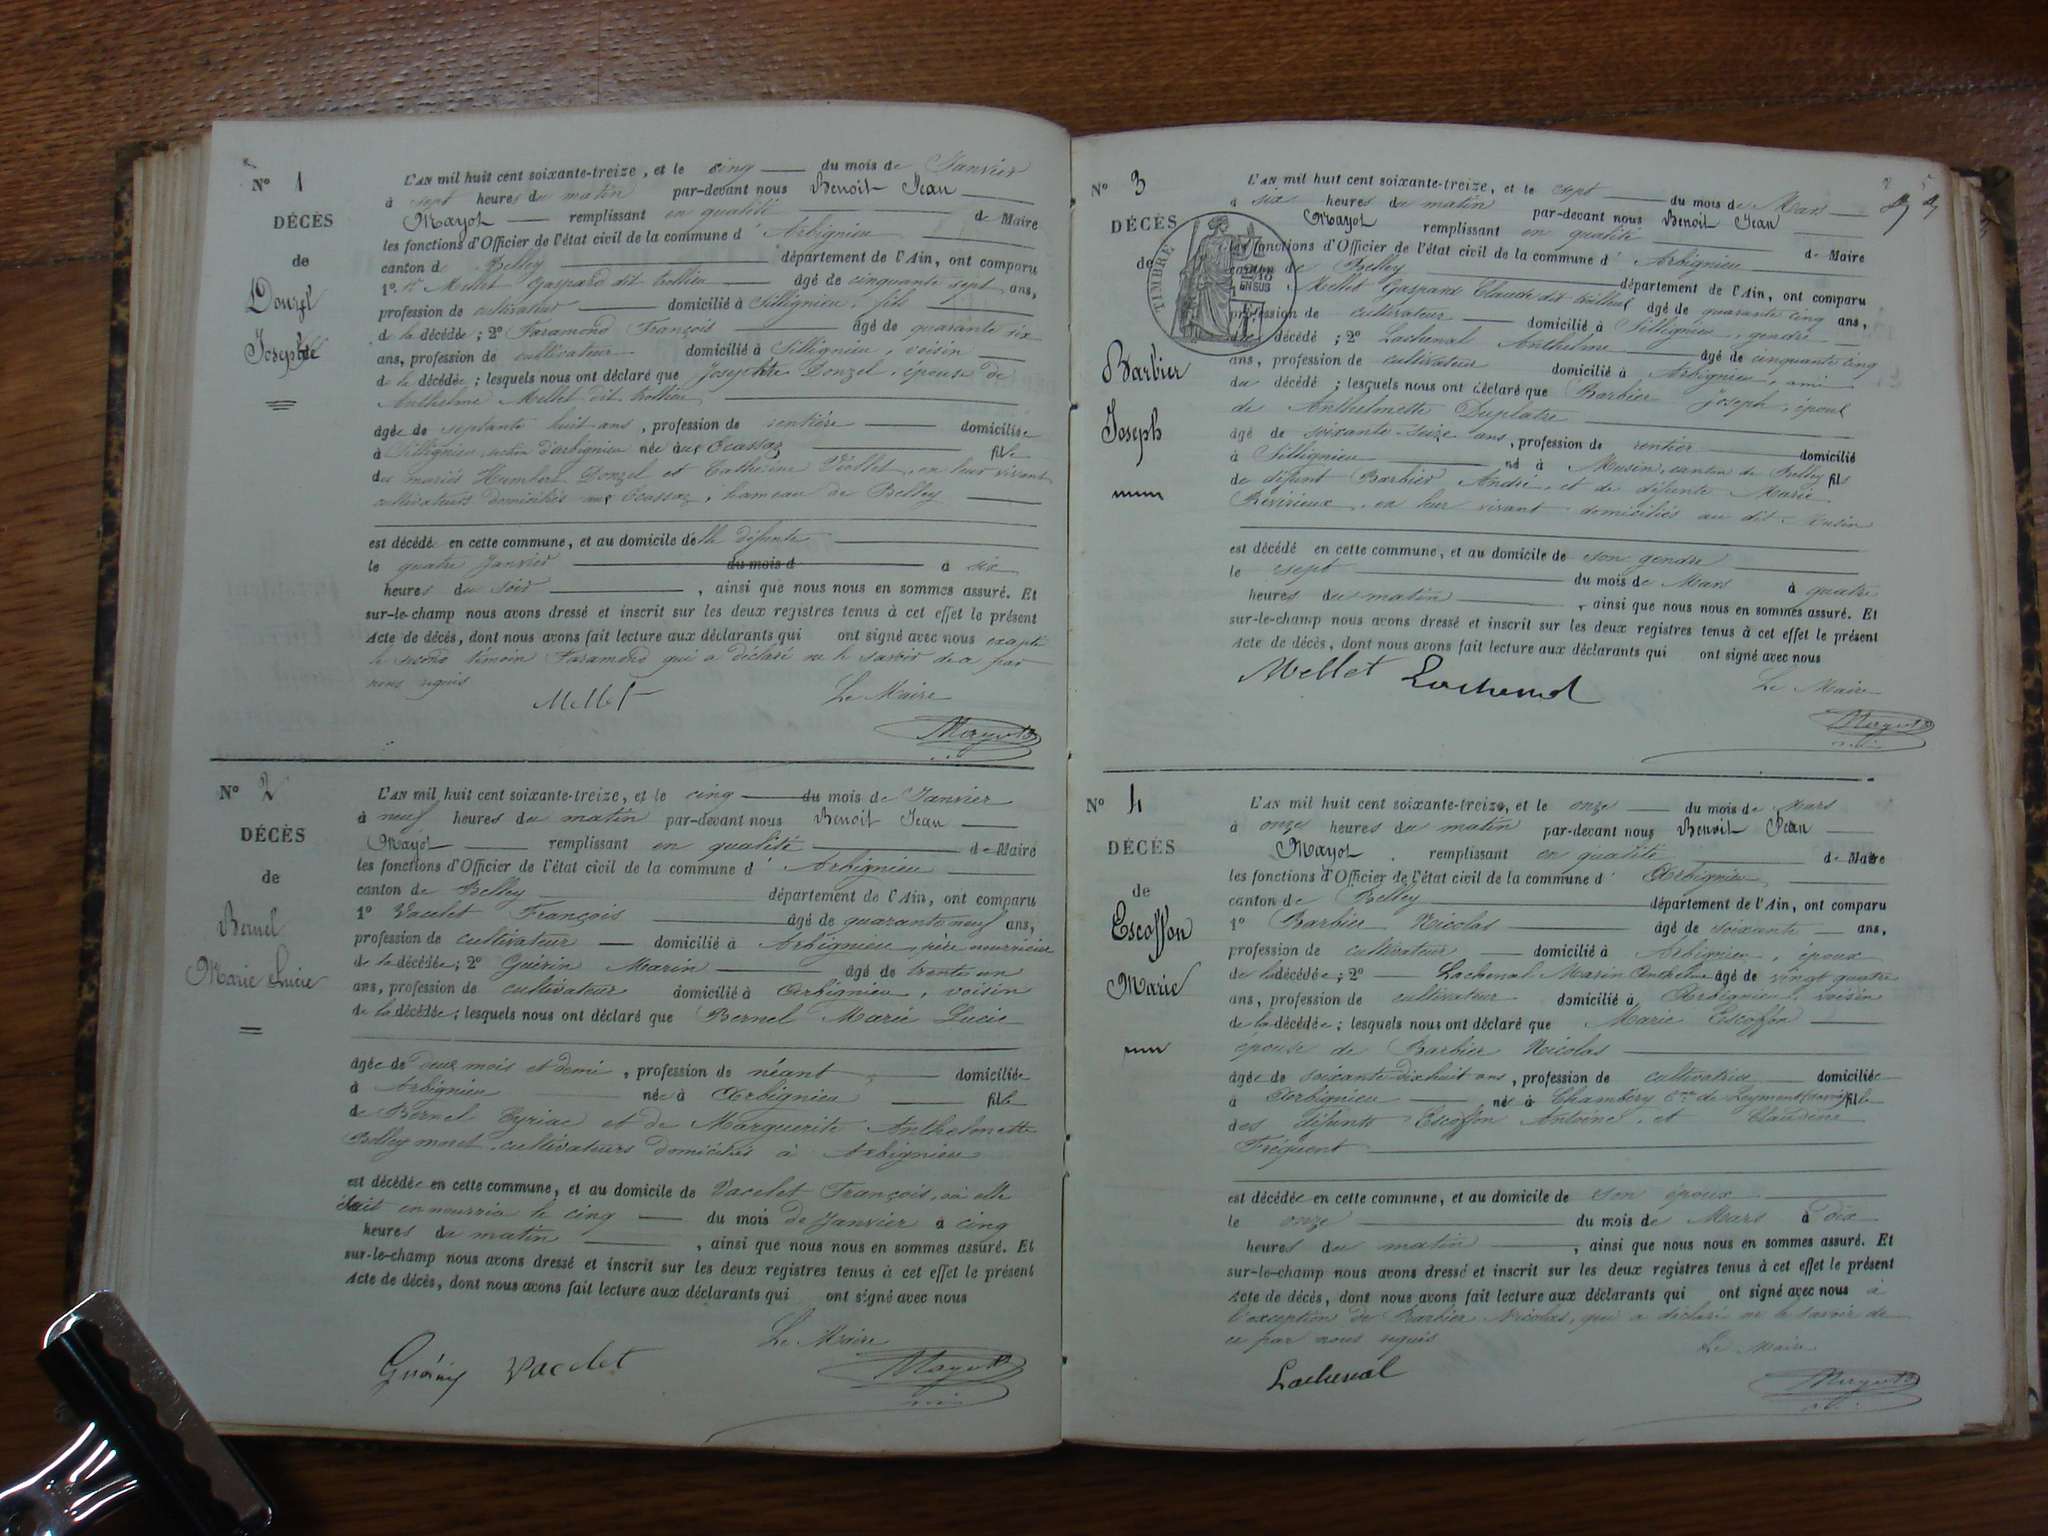 N° 1
DÉCÈS
de
Donzel
Josephte
L'AN mil huit cent soixante-treize, et le cinq du mois de Janvier
à sept heures du matin par-devant nous Benoit Jean
Mayot remplissant en qualité de Maire
les fonctions d'Officier de l'état civil de la commune d' Arbignieu
canton de Belley département de l'Ain, ont comparu
1°. Mellet Gaspard dit trollieu âgé de cinquante sept ans,
profession de cultivateur domicilié à Sillignieu, fils
de la décédée; 2° Faramond François âgé de quarante six
ans, profession de cultivateur domicilié à Sillignieu, voisin
de la décédée; lesquels nous ont déclaré que Josephte Donzel, épouse de
Anthelme Mellet dit trollieu
âgée de septante huit ans, profession de rentière domiciliée
à Sillignieu section d'arbignieu née aux Ecassaz fille
des mariés Humbert Donzel et Catherine Viollet, en leur vivant
cultivateurs domiciliés aux Ecassaz, hameau de Belley
est décédé en cette commune, et au domicile de lle défunte
le quatre Janvier du mois d à six
heures du soir, ainsi que nous nous en sommes assuré. Et
sur-le-champ nous avons dressé et inscrit sur les deux registres tenus à cet effet le présent
Acte de décès, dont nous avons fait lecture aux déclarants qui ont signé avec nous excepté
le second témoin Faramond qui a déclaré ne le savoir de ce par
nous requis
Mellet Le Maire
Mayot B
N° 2
DÉCÈS
de
Bernel
Marie Lucie
L'AN mil huit cent soixante-treize, et le cinq du mois de Janvier
à neuf heures du matin par-devant nous Benoit Jean
Mayot remplissant en qualité de Maire
les fonctions d'Officier de l'état civil de la commune d' Arbignieu
canton de Belley département de l'Ain, ont comparu
1° Vacelet François âgé de quarante neuf ans,
profession de cultivateur domicilié à Arbignieu, père nourricier
de la décédée; 2° Guérin Marin âgé de trente un
ans, profession de cultivateur domicilié à Arbignieu, voisin
de la décédée; lesquels nous ont déclaré que Bernel Marie Lucie
âgée de deux mois et demi, profession de néant domiciliée
à Arbignieu née à Arbignieu fille
de Bernel Cyriac et de Marguerite Anthelmette
Belleymont cultivateurs domiciliés à Arbignieu
est décédée en cette commune, et au domicile de Vacelet François, où elle
était en nourrice le cinq du mois de Janvier à cinq
heures du matin, ainsi que nous nous en sommes assuré. Et
sur-le-champ nous avons dressé et inscrit sur les deux registres tenus à cet effet le présent
Acte de décès, dont nous avons fait lecture aux déclarants qui ont signé avec nous
Le Maire
Guérin Vacelet Mayot B
N° 3
DÉCÈS
de
TIMBRE
Barbier
Joseph
L'AN mil huit cent soixante-treize, et le sept du mois de Mars
à six heures du matin par-devant nous Benoit Jean
Mayot remplissant en qualité de Maire
les fonctions d'Officier de l'état civil de la commune d' Arbignieu
canton de Belley département de l'Ain, ont comparu
Mellet Gaspard Claude dit trollieu âgé de quarante cinq ans,
profession de cultivateur domicilié à Sillignieu, gendre
du décédé; 2° Lachenal Anthelme âgé de cinquante cinq
ans, profession de cultivateur domicilié à Arbignieu, ami
du décédé; lesquels nous ont déclaré que Barbier Joseph, époux
de Anthelmette Duplatre
âgé de soixante-seize ans, profession de rentier domicilié
à Sillignieu né à Musin, canton de Belley fils
de défunt Barbier André, et de défunte Marie
en leur vivant domiciliés au dit Musin
est décédé en cette commune, et au domicile de son gendre
le sept du mois de Mars à quatre
heures du matin, ainsi que nous nous en sommes assuré. Et
sur-le-champ nous avons dressé et inscrit sur les deux registres tenus à cet effet le présent
Acte de décès, dont nous avons fait lecture aux déclarants qui ont signé avec nous
Mellet Lachenal Le Maire
Mayot B
N° 4
DÉCÈS
de
Escoffon
Marie
L'AN mil huit cent soixante-treize, et le onze du mois de Mars
à onze heures du matin par-devant nous Benoit Jean
Mayot remplissant en qualité de Maire
les fonctions d'Officier de l'état civil de la commune d' Arbignieu
canton de Belley département de l'Ain, ont comparu
1° Barbier Nicolas âgé de soixante ans,
profession de cultivateur domicilié à Arbignieu, époux
de la décédée; 2° Lachenal Marin Anthelme âgé de vingt quatre
ans, profession de cultivateur domicilié à Arbignieu, voisin
de la décédée; lesquels nous ont déclaré que Marie Escoffon
épouse de Barbier Nicolas
âgée de soixante-dix huit ans, profession de cultivatrice domiciliée
à Arbignieu née à Chambéry fille
des défunts Escoffon Antoine, et Claudine
Fréquent
est décédée en cette commune, et au domicile de son époux
le onze du mois de Mars à dix
heures du matin, ainsi que nous nous en sommes assuré. Et
sur-le-champ nous avons dressé et inscrit sur les deux registres tenus à cet effet le présent
Acte de décès, dont nous avons fait lecture aux déclarants qui ont signé avec nous à
l'exception de Barbier Nicolas, qui a déclaré ne le savoir de
ce par nous requis
Le Maire
Lachenal Mayot B